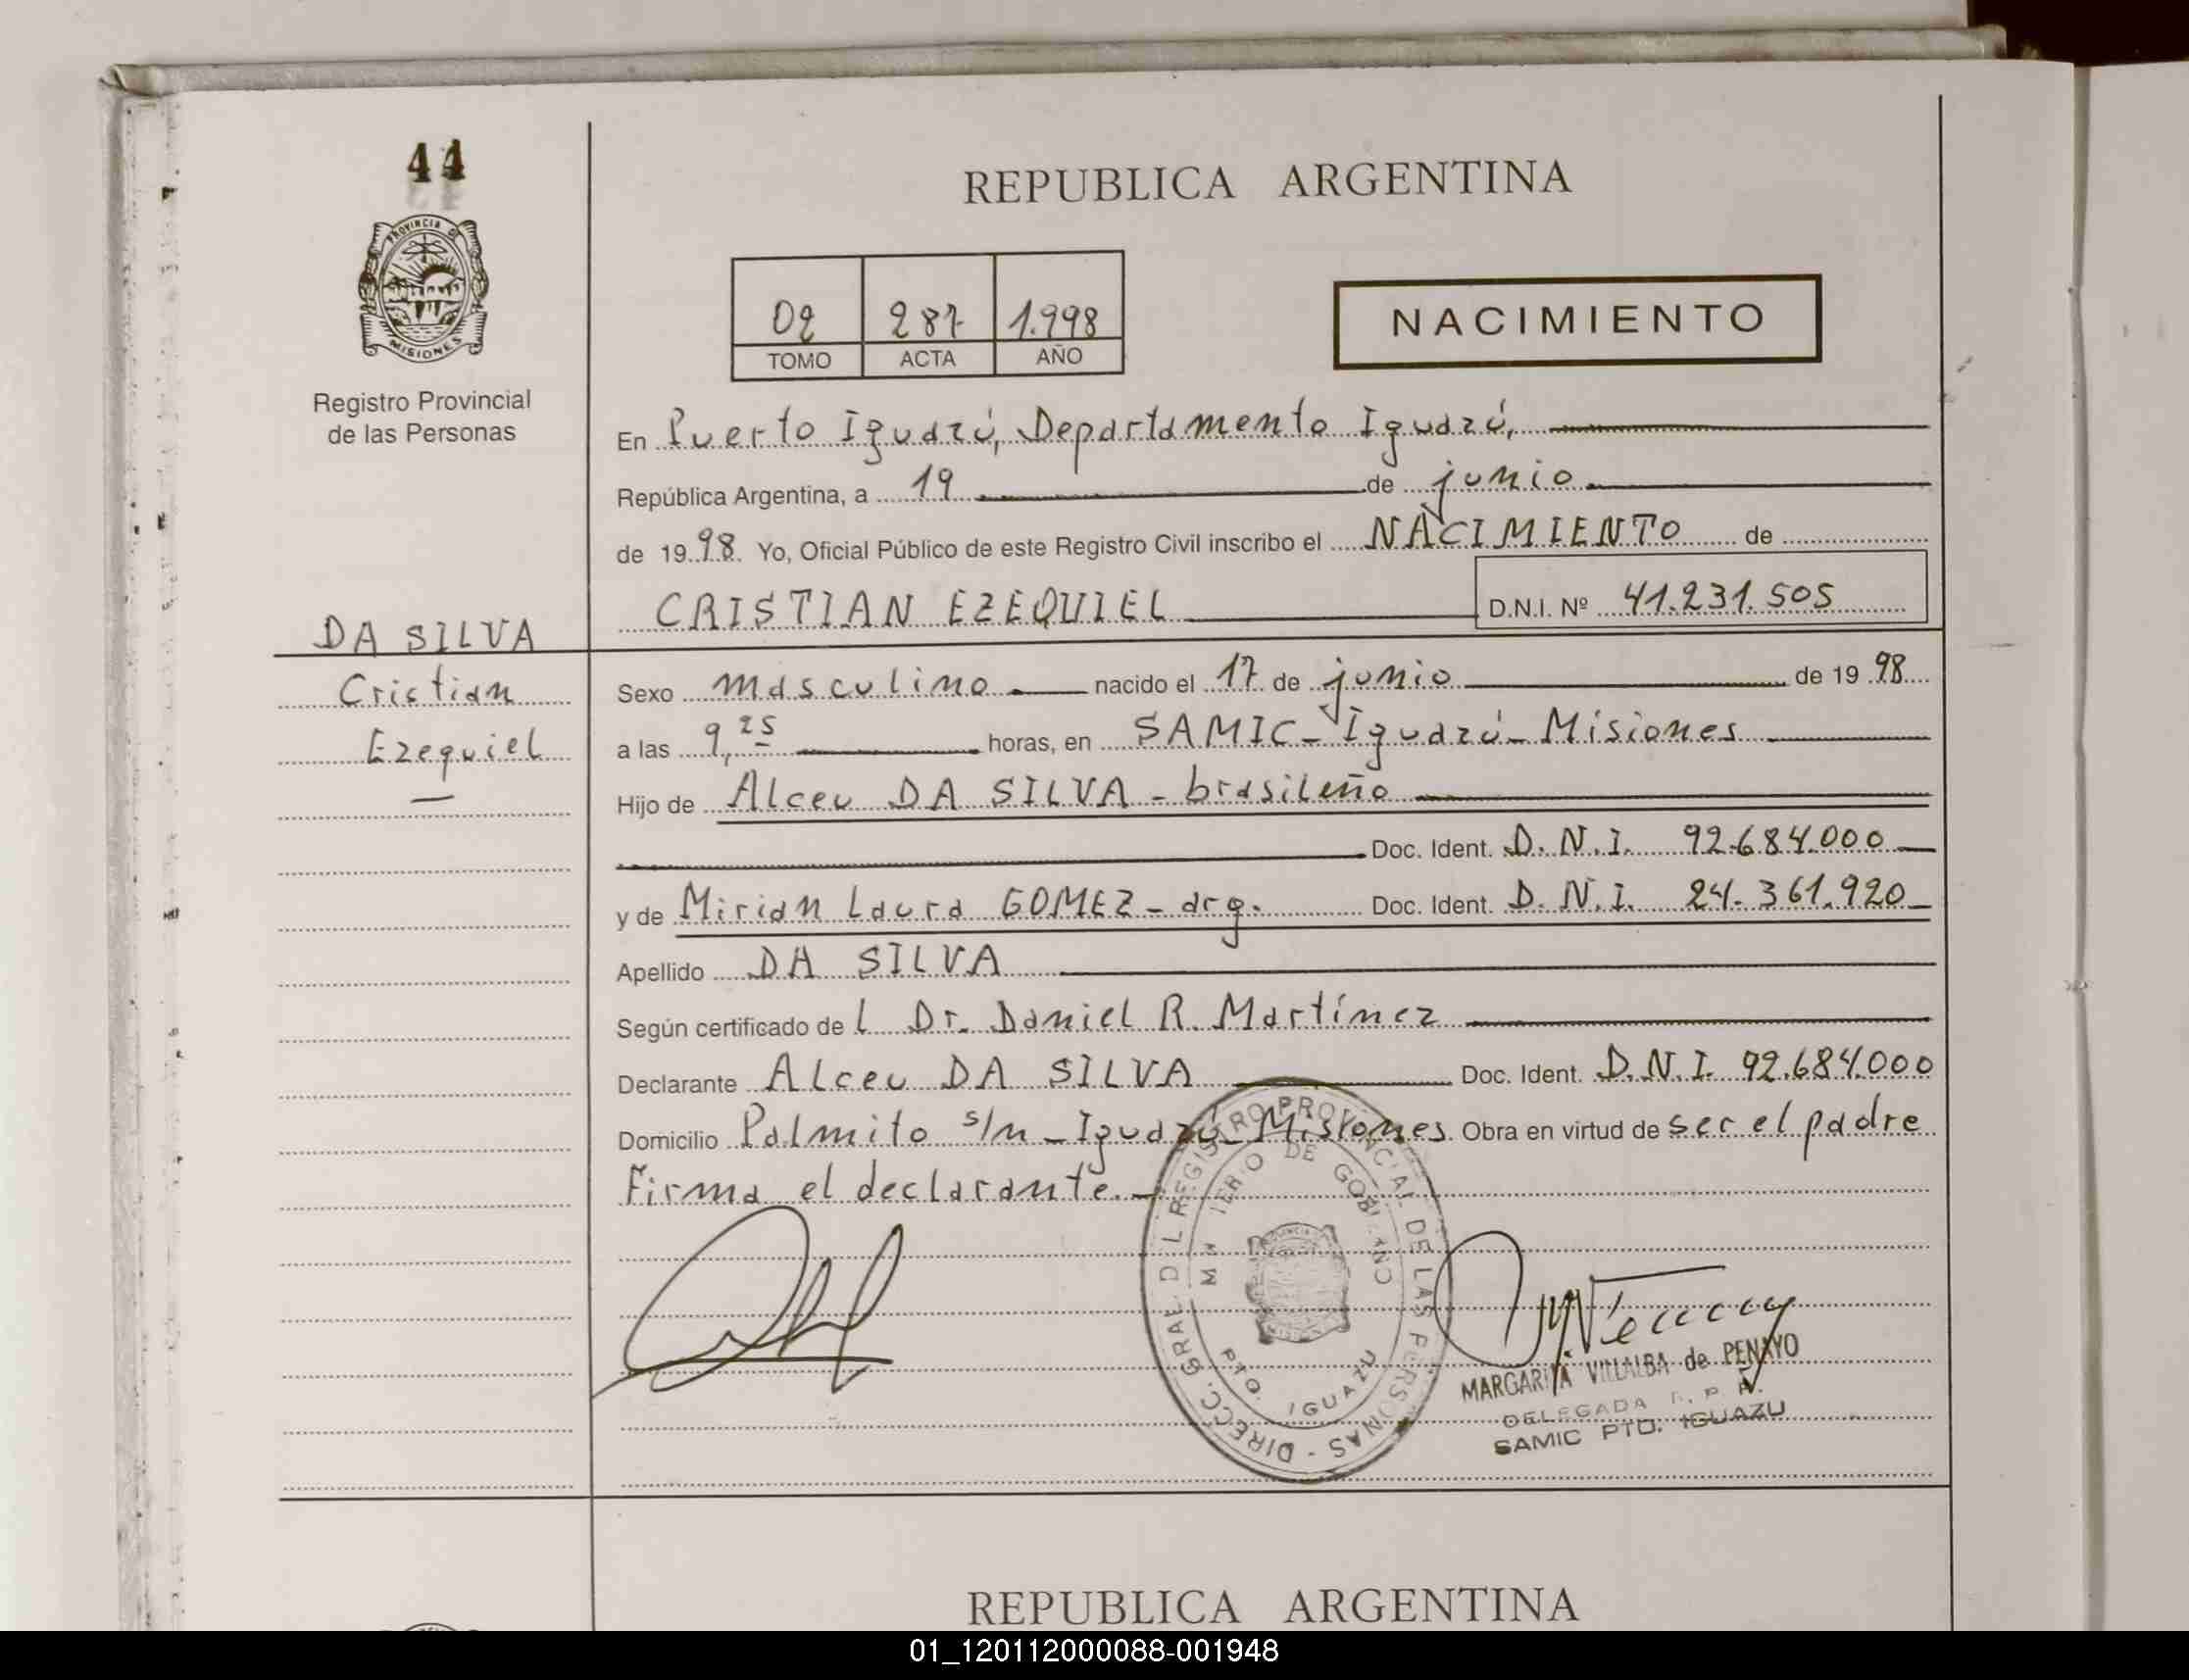 44
PROVINCIA DE
MISIONES
Registro Provincial
de las Personas
DA SILVA
Cristian
Ezequiel
REPUBLICA ARGENTINA
02 287 1.998
TOMO ACTA AÑO
NACIMIENTO
En Puerto Iguazú, Departamento Iguazú,
República Argentina, a 19 de junio
de 1998. Yo, Oficial Público de este Registro Civil inscribo el NACIMIENTO de
CRISTIAN EZEQUIEL D.N.I. Nº 41.231.505
Sexo masculino nacido el 17 de junio de 1998
a las 9,25 horas, en SAMIC - Iguazú - Misiones
Hijo de Alceu DA SILVA - brasileño
Doc. Ident. D.N.I. 92.684.000
y de Mirian Laura GOMEZ - arg. Doc. Ident. D.N.I. 24.361.920
Apellido DA SILVA
Según certificado del Dr. Daniel R. Martínez
Declarante Alceu DA SILVA Doc. Ident. D.N.I. 92.684.000
Domicilio Palmito s/n - Iguazú - Misiones Obra en virtud de ser el padre
Firma el declarante. -
DIRECC. GRAL. D L REGISTRO PROVINCIAL DE LAS PERSONAS -
DE
PTO. IGUAZU
MARGARITA VILLALBA de PENAYO
DELEGADA
SAMIC PTO. IGUAZU
REPUBLICA ARGENTINA
01_120112000088-001948